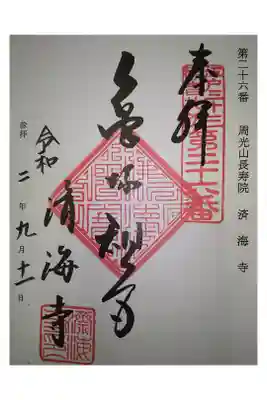 第二十六番 周光山長寿院 済海寺
奉拝
第二十六番
亀塚観音
済海寺
参拝 令和二年九月十一日